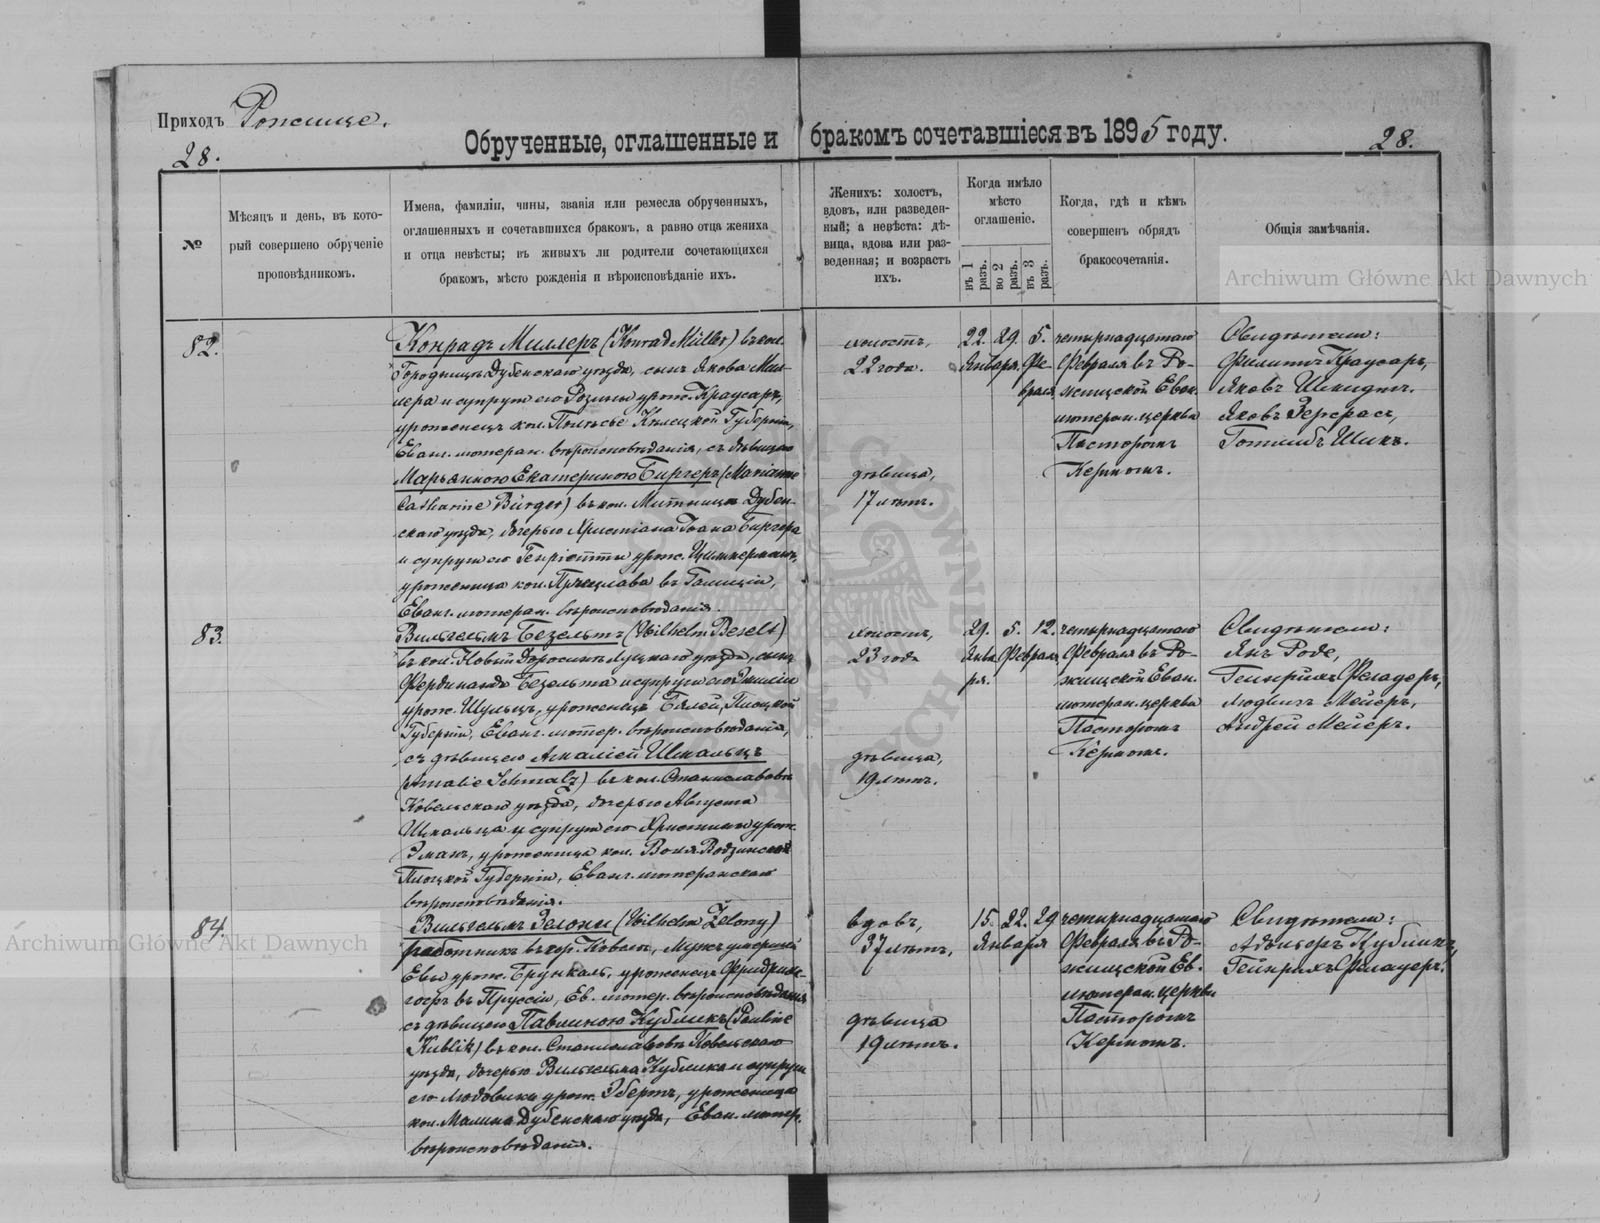 Приходъ Рожище.
28.
Обрученные, оглашенные и бракомъ сочетавшіеся въ 1895 году.
28.
№
Мѣсяцъ и день, въ кото-
рый совершено обрученіе
проповѣдникомъ.
Имена, фамиліи, чины, званія или ремесла обрученныхъ,
оглашенныхъ и сочетавшихся бракомъ, а равно отца жениха
и отца невѣсты; въ живыхъ ли родители сочетающихся
бракомъ, мѣсто рожденія и вѣроисповѣданіе ихъ.
Женихъ: холостъ,
вдовъ, или разведен-
ный; а невѣста: дѣ-
вица, вдова или раз-
веденная; и возрастъ
ихъ.
Когда имѣло
мѣсто
оглашеніе.
въ 1 разъ.
во 2 разъ.
въ 3 разъ.
Когда, гдѣ и кѣмъ
совершенъ обрядъ
бракосочетанія.
Общія замѣчанія.
Archiwum Główne Akt Dawnych
82.
Конрадъ Миллеръ (Konrad Müller) въ кол.
Городница Дубенскаго уѣзда, сынъ Якова Мил-
лера и супруги его Розины урож. Краузаръ,
уроженецъ кол. Полѣсье Кѣлецкой Губерніи,
Еванг. лютеран. вѣроисповѣданія, съ дѣвицею
Марьянною Екатериною Биргеръ (Marianne
Catharine Bürger) въ кол. Митница Дубен-
скаго уѣзда, дочерью Христіана Іоана Биргера
и супруги его Генріетты урож. Циммерманъ,
уроженица кол. въ Галиціи,
Еванг. лютеран. вѣроисповѣданія.
холостъ,
22 года.
дѣвица,
17 лѣтъ.
22. 29. 5.
Января. Фе-
враля
четырнадцатаго
Февраля въ Ро-
жищской Еван.
лютеран. церкви
Пасторомъ
Кермомъ.
Свидѣтели:
Филиппъ Краузаръ,
Яковъ Шмидтъ.
Яковъ Зерфасъ,
Готлибъ Шикъ.
83.
Вильгельмъ Безельтъ (Wilhelm Beselt)
въ кол. Новый Доросинъ Луцкаго уѣзда, сынъ
Фердинанда Безельта и супруги его Эмиліи
урож. Шульцъ, уроженецъ Бялей, Плоцкой
Губерніи, Еванг. лютер. вѣроисповѣданія,
съ дѣвицею Амаліей Шмальцъ
(Amalie Schmalz) въ кол. Станиславовкѣ
Ковельскаго уѣзда, дочерью Августа
Шмальца и супруги его Христины урож.
Эманъ, уроженица кол. Воля Водзинской
Плоцкой Губерніи, Еванг. лютеранскаго
вѣроисповѣданія.
холостъ,
23 года
дѣвица,
19 лѣтъ.
29. 5. 12.
Янва Февраля
ря.
четырнадцатаго
Февраля въ Ро-
жищской Еван.
лютеран. церкви
Пасторомъ
Кермомъ.
Свидѣтели:
Янъ Роде,
Генрихъ Фладеръ,
Людвигъ Мейеръ,
Андрей Мейеръ.
84.
Вильгельмъ Зелони (Wilhelm Zelony)
работникъ въ гор. Ковелѣ, мужъ умершей
Евы урож. Брункаль, уроженецъ Фридрихс-
гофъ въ Пруссіи, Ев. лютер. вѣроисповѣданія
съ дѣвицею Павлиною Кубликъ (Pauline
Kublik) въ кол. Станиславовкѣ Ковельскаго
уѣзда, дочерью Вильгельма Кублика и супруги
его Людовики урож. Эбертъ, уроженица
кол. Малина Дубенскаго уѣзда, Еван. лютер.
вѣроисповѣданія.
вдовъ,
37 лѣтъ,
дѣвица
19 лѣтъ.
15. 22. 29
Января
четырнадцатаго
Февраля въ Ро-
жищской Ев.
лютеран. церкви
Пасторомъ
Кермомъ.
Свидѣтели:
Адольфъ Кубликъ,
Гейнрихъ Флауеръ.
Archiwum Główne Akt Dawnych